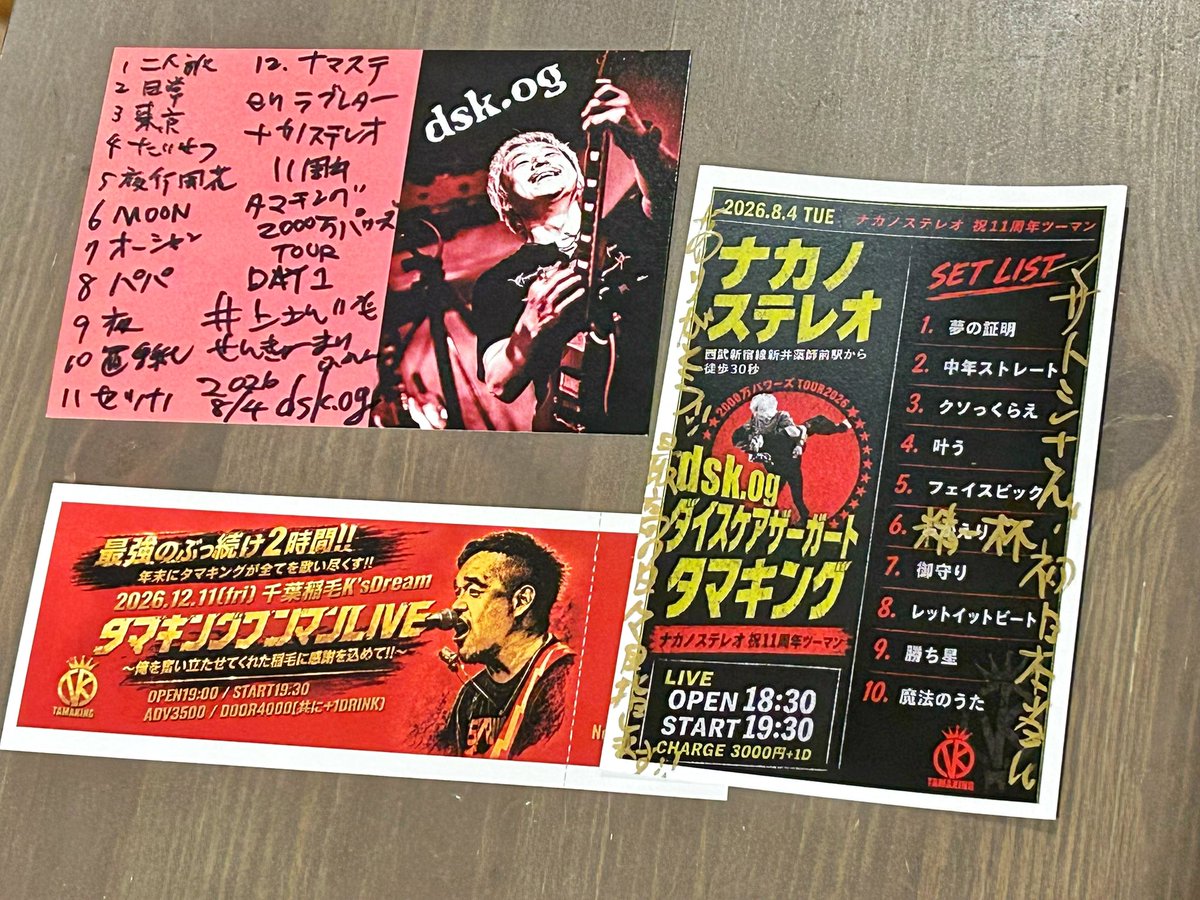 1 二人
2 日常
3 東京
4 たいせつ
5 夜行
6 MOON
7 オーシャン
8 パパ
9 夜
10
11
12. ナマステ
en ラブレター
ナカノステレオ
11周年
タマキング
2000万パワーズ
TOUR
DAY1
井上さんいつも
せんきゅーまり
2026
8/4 dsk.og
dsk.og
最強のぶっ続け2時間!!
年末にタマキングが全てを歌い尽くす!!
2026.12.11(fri) 千葉稲毛K'sDream
タマキングワンマンLIVE
〜俺を奮い立たせてくれた稲毛に感謝を込めて!!〜
OPEN19:00 / START19:30
ADV3500 / DOOR4000(共に+1DRINK)
TAMAKING
2026.8.4 TUE ナカノステレオ 祝11周年ツーマン
ナカノ
ステレオ
西武新宿線新井薬師前駅から
徒歩30秒
2000万パワーズ TOUR2026
dsk.og
ダイスケアザーガート
タマキング
ナカノステレオ 祝11周年ツーマン
LIVE
OPEN 18:30
START 19:30
CHARGE 3000円+1D
SET LIST
1. 夢の証明
2. 中年ストレート
3. クソっくらえ
4. 叶う
5. フェイスビック
6. えり
7. 御守り
8. レットイットビート
9. 勝ち星
10. 魔法のうた
TAMAKING
サトシさん、初日本当に
ありがとう
精一杯